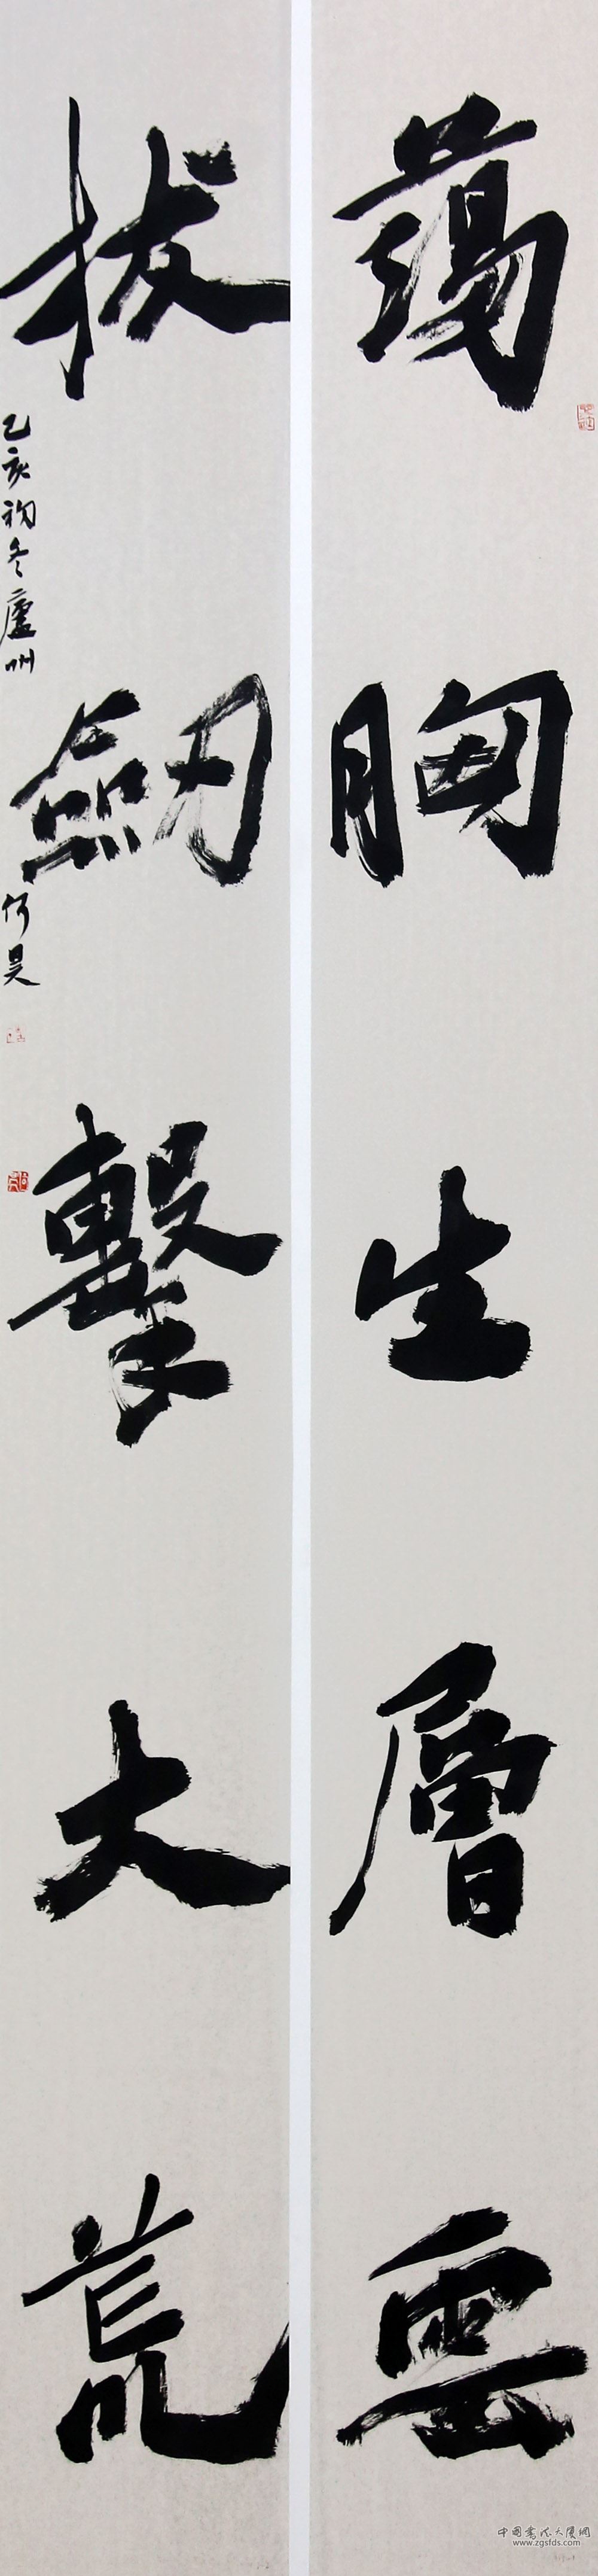 蕩胸生層雲
拔劔擊大荒
乙亥初冬廬州
何昊
中國書法大廈網
www.zgsfds.com